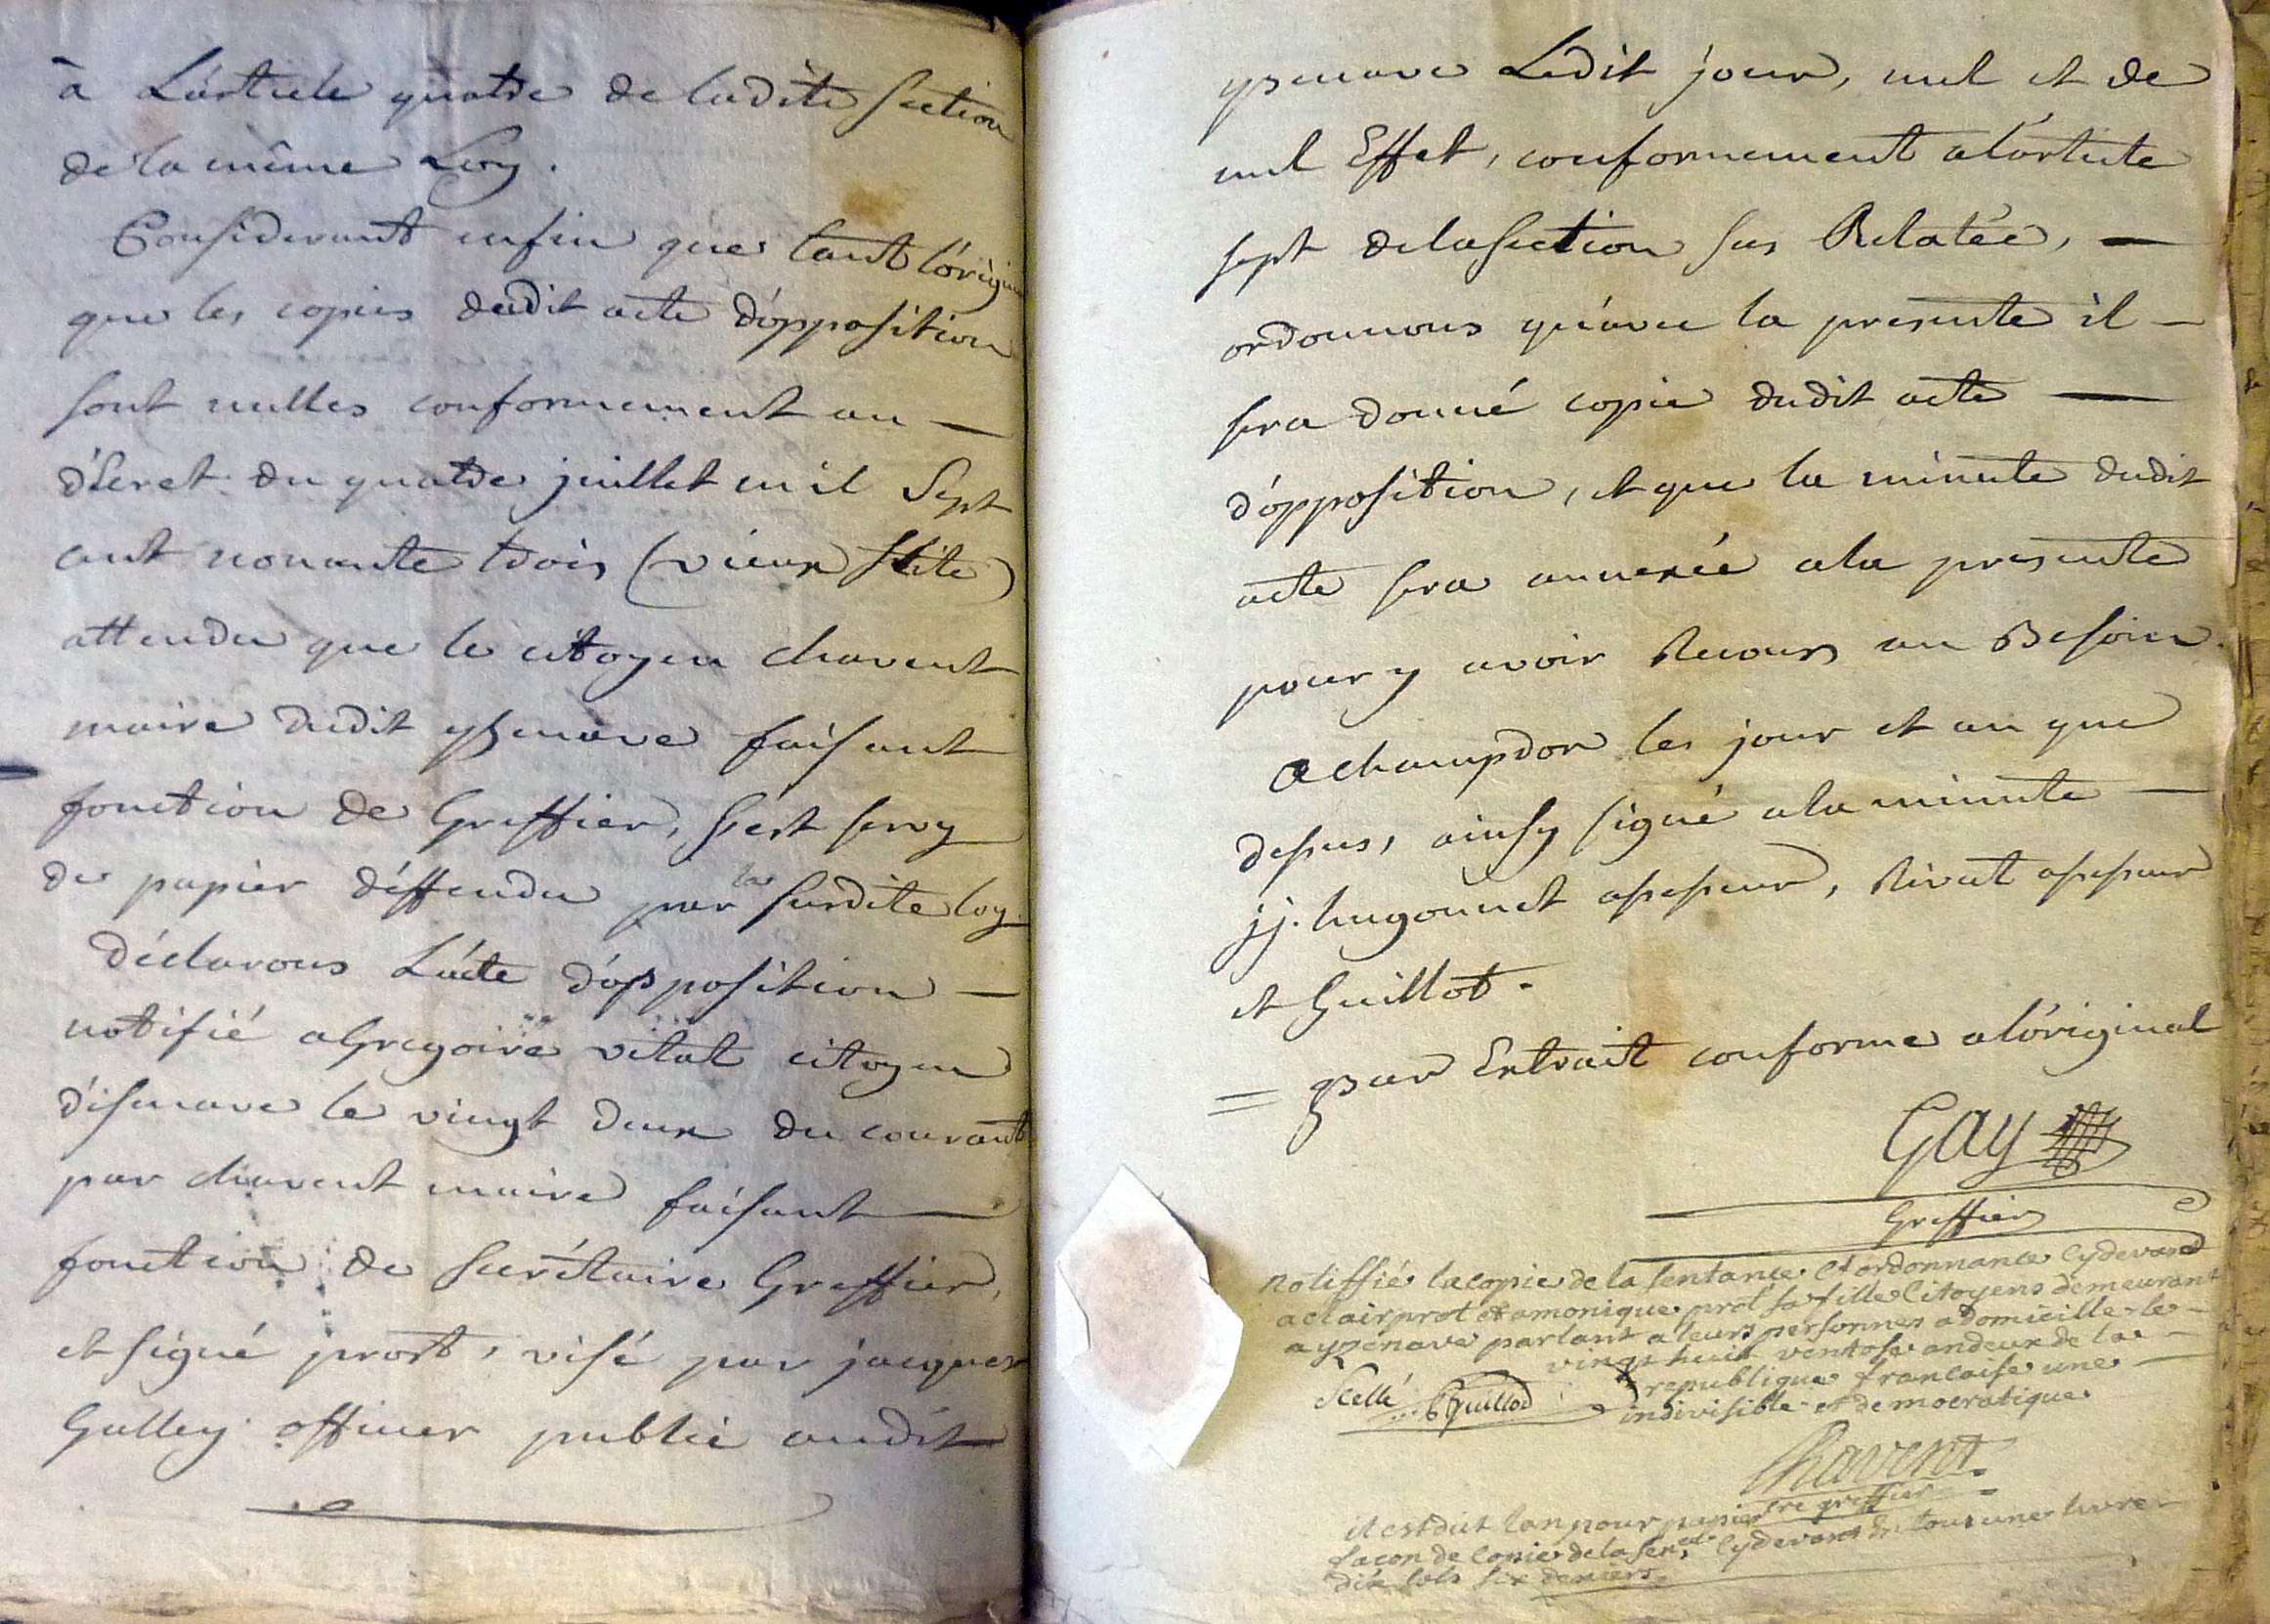 à L'article quatre de ladite section
de la même Loy.
Considerant enfin que tant l'origin
que les copies dudit acte d'opposition
sont nulles conformement au —
décret du quatre juillet mil Sept
cent nonante trois (vieux stile)
attendu que le citoyen chavent
maire dudit ysenave faisant
fonction de Greffier, s'est servy
de papier déffendu par la susdite loy.
Déclarons L'acte d'opposition —
notifié a Gregoire vitat citoyen
d'isenave le vingt deux du courant
par chavent maire faisant —
fonction de secrétaire Greffier,
et signé prost, visé par jacques
Gulley officier public audit
ysenave Ledit jour, nul et de
nul Effet, conformement a l'article
sept de la section sus Relatée, —
ordonnons qu'avec la presente il —
sera donné copie dudit acte —
d'opposition, et que la minute dudit
acte sera annexée a la presente
pour y avoir Recours au Besoin.
a champdor les jour et an que
dessus, ainsy signé a la minute —
jj. hugonnet assesseur, Rivat assesseur
et Guillot.
= par Extrait conforme a l'original
Gay
Greffier
notiffié la copie de la sentance et ordonnance cy devand
a clair prot et a monique prot sa fille Citoyens demeurant
a ypénave parlant a leurs personnes a domicille le —
vingt huit ventose an deux de la —
republique francaise une —
indivisible et democratique
Scellé Guillod
Chavent
sre greffier
il est dut tan pour papier
facon de Copie de la sence cy devant en tout une livre
dix sols six deniers